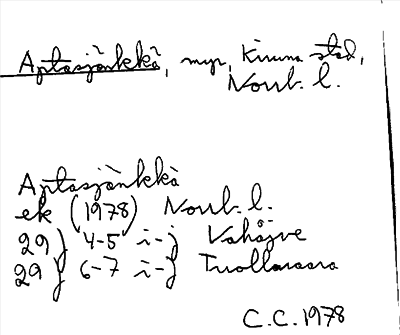 Aptasjänkkä, myr, Kiruna stad,
Norrb. l.
Aptasjänkkä
ek (1978) Norrb. l.
29} 4-5 i-j Vahåjve
29} 6-7 i-j Tuollavaara
C.C. 1978